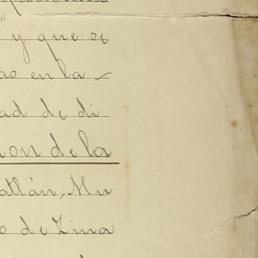 y que se
as en la
ad de di
ion de la
atlán, Mu
o de Zina